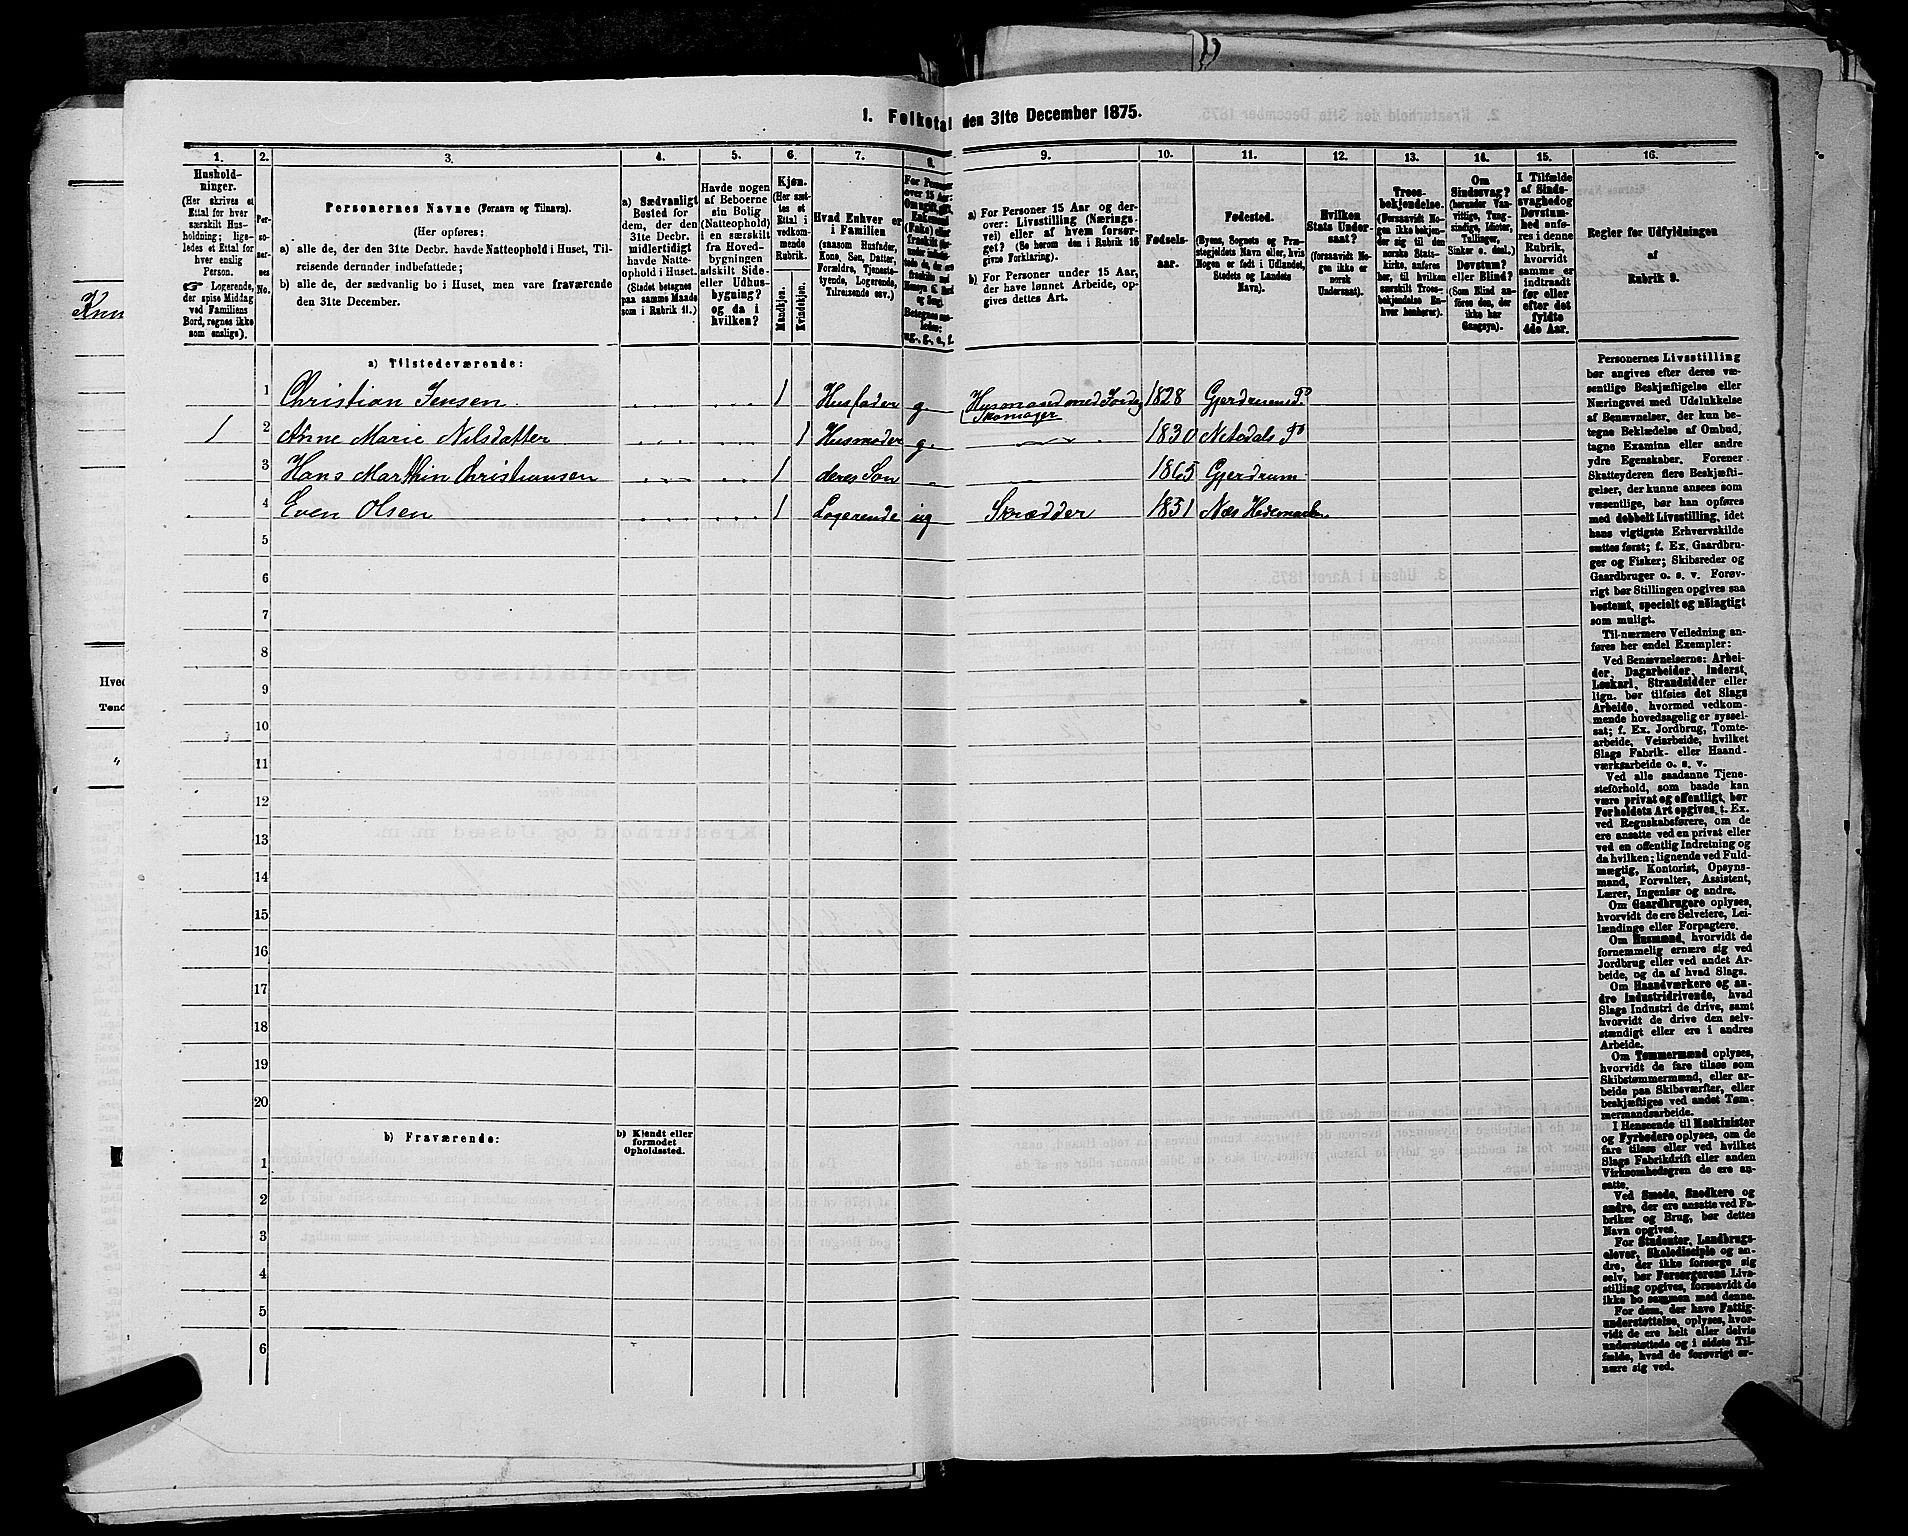 1. Folketal den 31te December 1875.
1.
2.
3.
4.
5.
6.
7.
8.
9.
10.
11.
12.
13.
14.
15.
16.
Husholdninger.
(Her skrives et Ettal for hver særskilt Husholdning; ligeledes et Ettal for hver enslig Person.
☞ Logerende, der spise Middag ved Familiens Bord, regnes ikke som enslige).
Personernes No.
Personernes Navne (Fornavn og Tilnavn).
(Her opføres:
a) alle de, der den 31te Decbr. havde Natteophold i Huset, Tilreisende derunder indbefattede;
b) alle de, der sædvanlig bo i Huset, men vare fraværende den 31te December.
a) Sædvanligt Bosted for dem, der den 31te Decbr. midlertidigt havde Natteophold i Huset. (Stedet betegnes paa samme Maade som i Rubrik 11.)
Havde nogen af Beboerne sin Bolig (Natteophold) i en særskilt fra Hovedbygningen adskilt Side- eller Udhusbygning? og da i hvilken?
Kjøn. (Her sættes et Ettal i vedkommende Rubrik.
Mandkjøn.
Kvindekjøn.
Hvad Enhver er i Familien
(saasom Husfader, Kone, Søn, Datter, Forældre, Tjenestetyende, Logerende, Tilreisende osv.)
a) For Personer 15 Aar og derover: Livsstilling (Næringsvei) eller af hvem forsørget? (Se herom den i Rubrik 16 givne Forklaring).
b) For Personer under 15 Aar, der have lønnet Arbeide, opgives dettes Art.
Fødselsaar.
Fødested.
(Byens, Sognets og Præstegjeldets Navn eller, hvis Nogen er født i Udlandet, Stedets og Landets Navn).
Hvilken Stats Undersaat?
(forsaavidt Nogen ikke er norsk Undersaat).
Troesbekjendelse.
(Forsaavidt Nogen ikke bekjender sig til den norske Statskirke, anføres her, til hvilken særskilt Troesbekjendelse Enhver henhører).
Om Sindssvag? (herunder Vanvittige, Tungsindige, Idioter, Tullinger, Sinker o. desl.) Døvstum? eller Blind? (Som Blind anføres den, der ikke har Gangsyn).
I Tilfælde af Sindssvaghed og Døvstumhed anføres i denne Rubrik, hvorvidt samme er indtraadt før eller efter det fyldte 4de Aar.
Regler for Udfyldningen
af
Rubrik 9.
a) Tilstedeværende:
1 Christian Jensen 1 Husfader g. Husmand med Jord og Skomager 1828 Gjerdrum P
1 2 Anne Marie Nilsdatter 1 Husmoder g. 1830 Nitedals P
3 Hans Marthin Christiansen 1 deres Søn 1865 Gjerdrum
4 Even Olsen 1 Logerende ug Skrædder 1851 Næs Hedemarken
5
6
7
8
9
10
11
12
13
14
15
16
17
18
19
20
b) Fraværende:
b) Kjendt eller formodet Opholdssted.
1
2
3
4
5
6
Personernes Livsstilling
bør angives efter deres væsentlige Beskjæftigelse eller
Næringsvei med Udelukkelse
af Benævnelser, der kun betegne Beklædelse af Ombud,
tagne Examina eller andre
ydre Egenskaber. Forener
Skatteyderen flere Beskjæftigelser, der kunne ansees som
væsentlige, bør han opføres
med dobbelt Livsstilling, idet
hans vigtigste Erhvervskilde
sættes først; f. Ex. Gaardbruger og Fisker; Skibsreder og
Gaardbruger o. s. v. Forøvrigt bør Stillingen opgives saa
bestemt, specielt og nøiagtigt
som muligt.
Til nærmere Veiledning anføres her endel Exempler:
Ved Benævnelserne: Arbeider, Dagarbeider, Inderst,
Løskarl, Strandsidder eller
lign. bør tilføies det Slags
Arbeide, hvormed vedkommende hovedsagelig er sysselsat; f. Ex. Jordbrug, Tomtearbeide, Veiarbeide, hvilket
Slags Fabrik- eller Haandværksarbeide o. s. v.
Ved alle saadanne Tjenesteforhold, som baade kan
være privat og offentligt, bør
Forholdets Art opgives, t. Ex.
ved Regnskabsførere, om de
ere ansatte ved en privat eller
ved en offentlig Indretning og
da hvilken; lignende ved Fuldmægtig, Kontorist, Opsynsmand, Forvalter, Assistent,
Lærer, Ingeniør og andre.
Om Gaardbrugere oplyses,
hvorvidt de ere Selveiere, Leilændinge eller Forpagtere.
Om Husmænd, hvorvidt de
fornemmelig ernære sig ved
Jordbrug eller ved andet Arbeide, og da af hvad Slags.
Om Haandværkere og andre Industridrivende, hvad
Slags Industri de drive, samt
hvorvidt de drive den selvstændigt eller ere i andres
Arbeide.
Om Tømmermænd oplyses,
hvorvidt de fare tilsøs som
Skibstømmermænd, eller arbeide paa Skibsværfter, eller
beskjæftiges ved andet Tømmermandsarbeide.
I Henseende til Maskinister
og Fyrbødere oplyses, om de
fare tilsøs eller ved hvilket
Slags Fabrikdrift eller anden
Virksomhedsgren de ere ansatte.
Ved Smede, Snedkere og
andre, der ere ansatte ved Fabriker og Brug, bør dettes
Navn opgives.
For Studenter, Landbrugselever, Skoledisciple og andre, der ikke forsørge sig
selv, bør Forsørgerens Livsstilling opgives, forsaavidt de
ikke bo sammen med denne.
For dem, der have Fattigunderstøttelse, oplyses, hvorvidt de ere helt eller delvis
understøttede og i sidste Tilfælde, hvad de forøvrigt ernære sig ved.